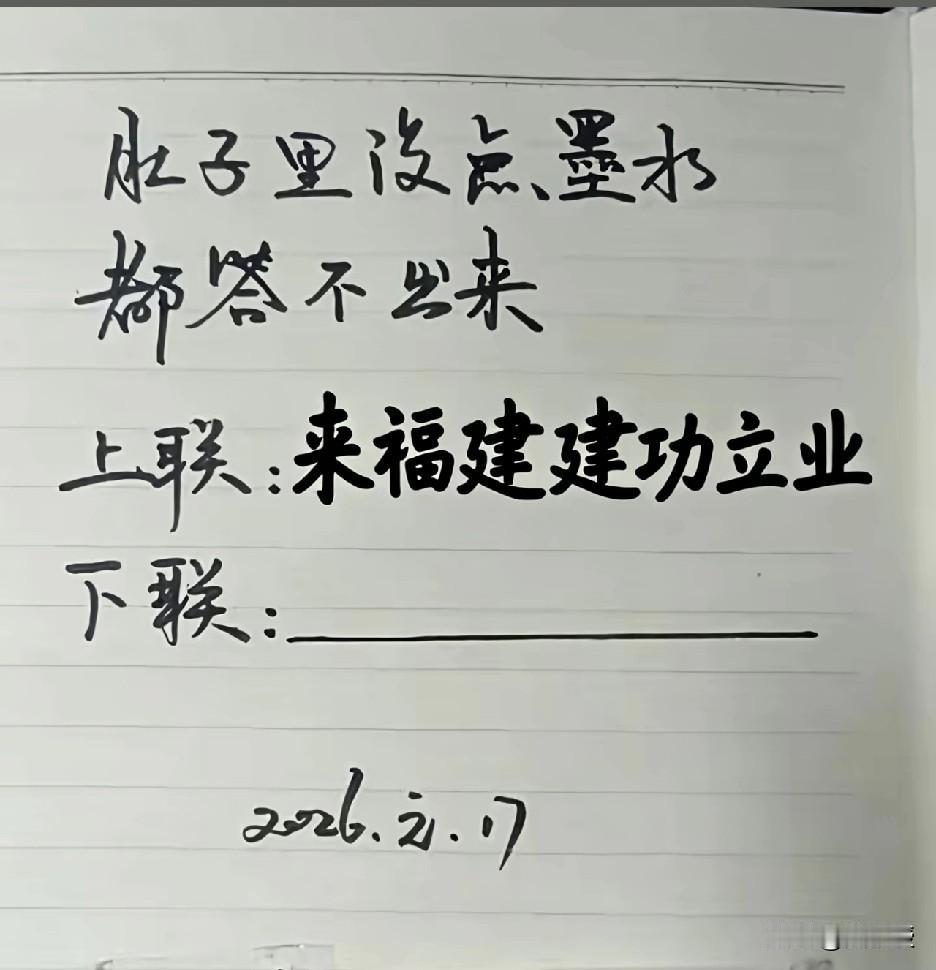 肚子里没点墨水
都答不出来
上联:来福建建功立业
下联:
2026.元.17